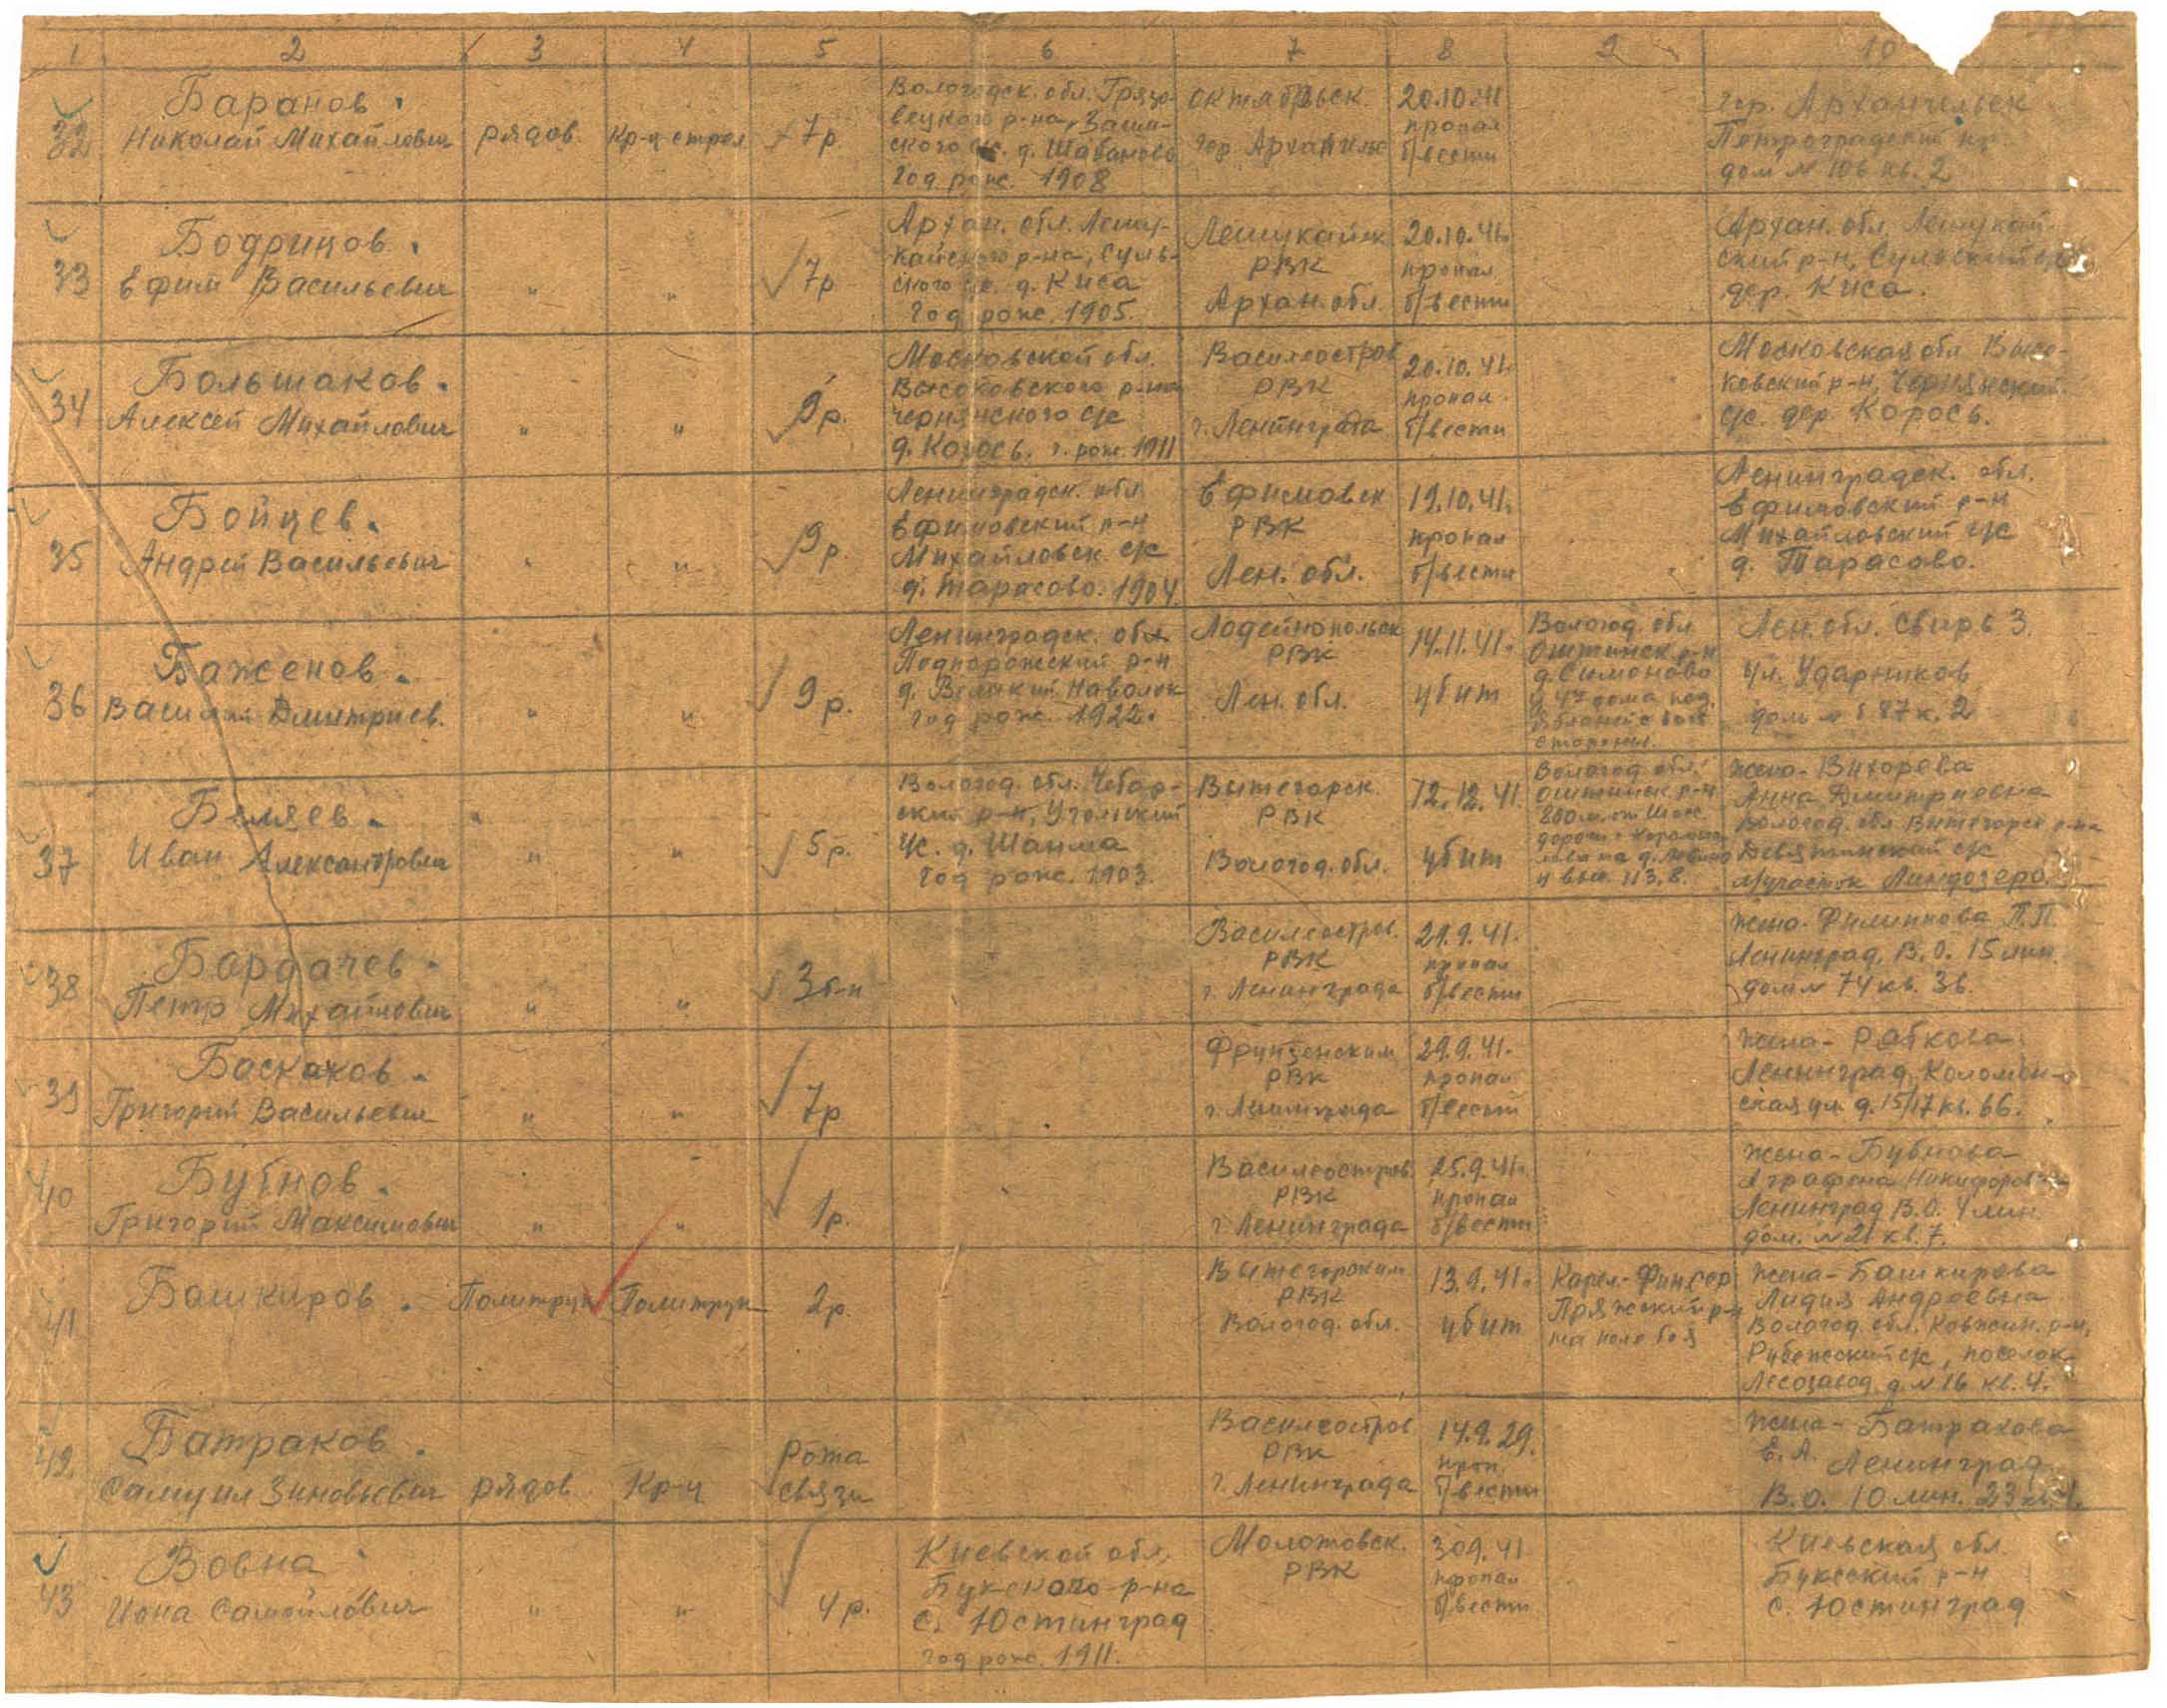 1 2 3 4 5 6 7 8 9 10
32
Баранов.
Николай Михайлович
рядов.
Кр-ц стрел
7р.
Вологодск. обл. Грязо-
вецкого р-на,
ского с/с. д. Шабаново
год рож. 1908
Октябрьск.
гор.
20.10.41
пропал
б/вести
гор. Архангельск
Петроградский пр.
дом № 106 кв. 2
33
Бодрицов.
Ефим Васильевич
" "
7р
Архан. обл. Лешу-
канского р-на, Суль-
ского с/с. д. Киса
Год рож. 1905.
Лешуканск
РВК
Архан. обл.
20.10.41.
пропал
б/вести
Архан. обл. Лешукон-
ский р-н, Сульский с/с
дер. Киса.
34
Большаков.
Алексей Михайлович
" "
9р.
Московской обл.
Высоковского р-на
Чернянского с/с
д. Корось. г. рож. 1911
Василеостров
РВК
г. Ленинграда
20.10.41.
пропал
б/вести
Московская обл. Высо-
ковский р-н, Чернянский
с/с. дер. Корось.
35
Бойцев.
Андрей Васильевич
" "
9р.
Ленинградск. обл.
Ефимовский р-н
Михайловск. с/с
д. Тарасово. 1904.
Ефимовск
РВК
Лен. обл.
19.10.41.
пропал
б/вести
Ленинградск. обл.
Ефимовский р-н
Михайловский с/с
д. Тарасово.
36
Баженов.
Василий Дмитриев.
" "
9р.
Ленинградск. обл.
Подпорожский р-н
д. Великий Наволок
год рож. 1922.
Лодейнопольск
РВК
Лен. обл.
14.11.41.
убит
Вологод. обл.
Оштинск. р-н
д. Симоново
у 47 дома под
яблоней с
стороны.
Лен. обл. Свирь 3.
ул. Ударников
дом № 87 к. 2
37
Беляев.
Иван Александрович
" "
5р.
Вологод. обл. Чебар-
ский р-н, Угольский
с/с. д. Шанма
Год рож. 1903.
Вытегорск.
РВК
Вологод. обл.
12.12.41.
убит
Вологод. обл.
Оштинск. р-н
800 м. от шос.
и выс. 113,8.
жена - Вихорева
Анна Дмитриевна
Вологод. обл. Вытегорск р-на
Девятинский с/с
м/участок Линдозеро.
38
Бардачев.
Петр Михайлович
" "
3 б-н
Василеостров.
РВК
г. Ленинграда
29.9.41.
пропал
б/вести
жена - Филиппова П.П.
Ленинград, В.О. 15 лин.
дом № 74 кв. 36.
39
Баскаков.
Григорий Васильевич
" "
7р.
Фрунзенским
РВК
г. Ленинграда
29.9.41.
пропал
б/вести
жена - Рябкова
Ленинград, Коломен-
ская ул. д. 15/17 кв. 66.
40
Бубнов.
Григорий Максимович
" "
1р.
Василеостров.
РВК
г. Ленинграда
25.9.41.
пропал
б/вести
жена - Бубнова
Аграфена Никифоровна
Ленинград В.О. 4 лин.
дом. № 21 кв. 7.
41
Башкиров.
Политрук
Политрук
2р.
Вытегорским
РВК
Вологод. обл.
13.9.41.
убит
Карел-Фин ССР
Пряжский р-н
на поле боя
жена - Башкирова
Лидия Андреевна
Вологод. обл. Ковжин. р-н,
Рубежский с/с, поселок
Лесозавод д. № 16 кв. 4.
42.
Батраков.
Самуил Зиновьевич
рядов.
Кр-ц
Рота
связи
Василеостров
РВК
г. Ленинграда
14.9.29.
проп.
б/вести
жена - Батракова
Е. А. Ленинград
В.О. 10 лин. 23
43
Вовна
Иона Самойлович
" "
4р.
Киевской обл.
Букского р-на
с. Юстинград
год рож. 1911.
Молотовск.
РВК
30.9.41
пропал
б/вести
Киевская обл.
Букский р-н
с. Юстинград